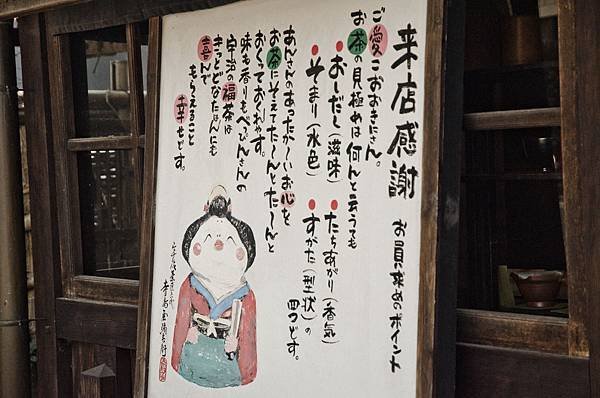 来店感謝
お買求めのポイント
ご愛こおおきにさん。
お茶の見極めは何んと云うても
おしだし(滋味)
たちあがり(香気)
そまり(水色)
すがた(型状)の
四つどす。
あんさんのあったか〜いお心を
お茶にそえてた〜んとた〜んと
おくっておくれやす。
味も香りもべっぴんさんの
宇治の福茶は
きっとどなたはんにも
喜んで
もらえること
幸せどす。